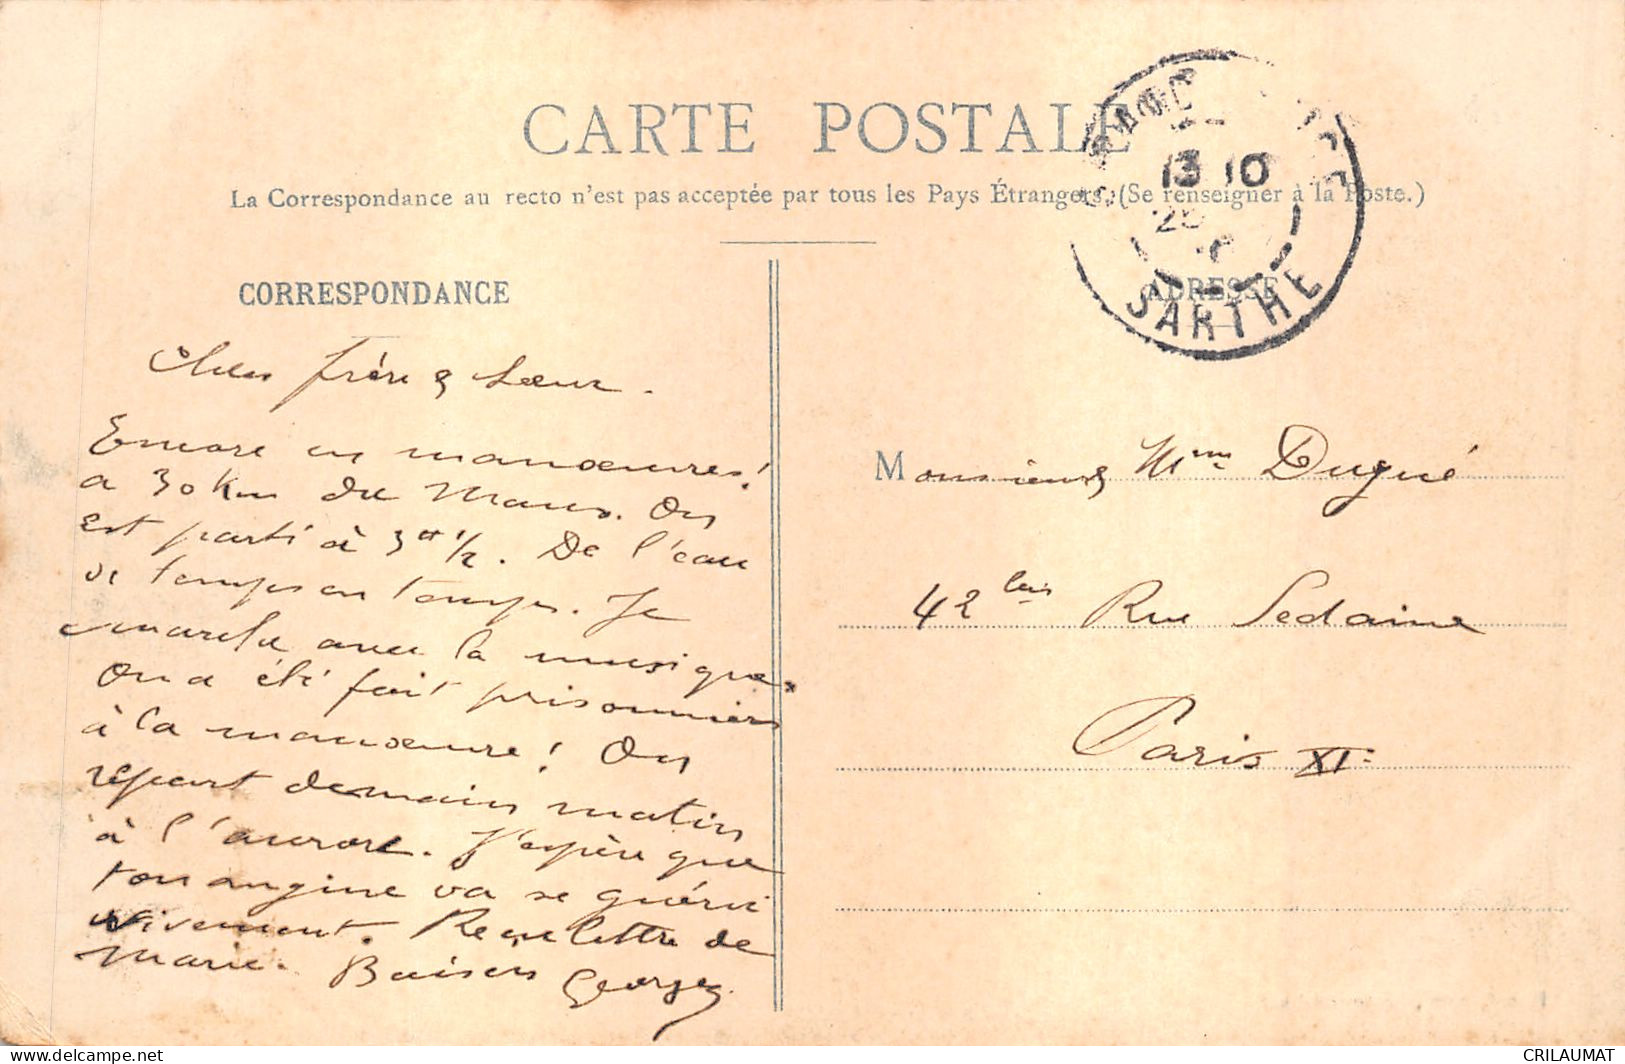 CARTE POSTALE
La Correspondance au recto n'est pas acceptée par tous les Pays Étrangers. (Se renseigner à la Poste.)
13 10
SARTHE
CORRESPONDANCE
ADRESSE
Chers frère & soeur.
Encore en manoeuvres!
a 30 Km du Mans. On
est parti à 3H 1/2. De l'eau
de temps en temps. Je
marche avec la musique.
On a été fait prisonniers
à la manoeuvre! On
repart demain matin
à l'aurore. J'espère que
ton angine va se guérir
vivement. Reçu lettre de
Marie. Baisers Georges
Monsieur & Mme Dugué
42 bis Rue Sedaine
Paris XI.
delcampe.net
CRILAUMAT